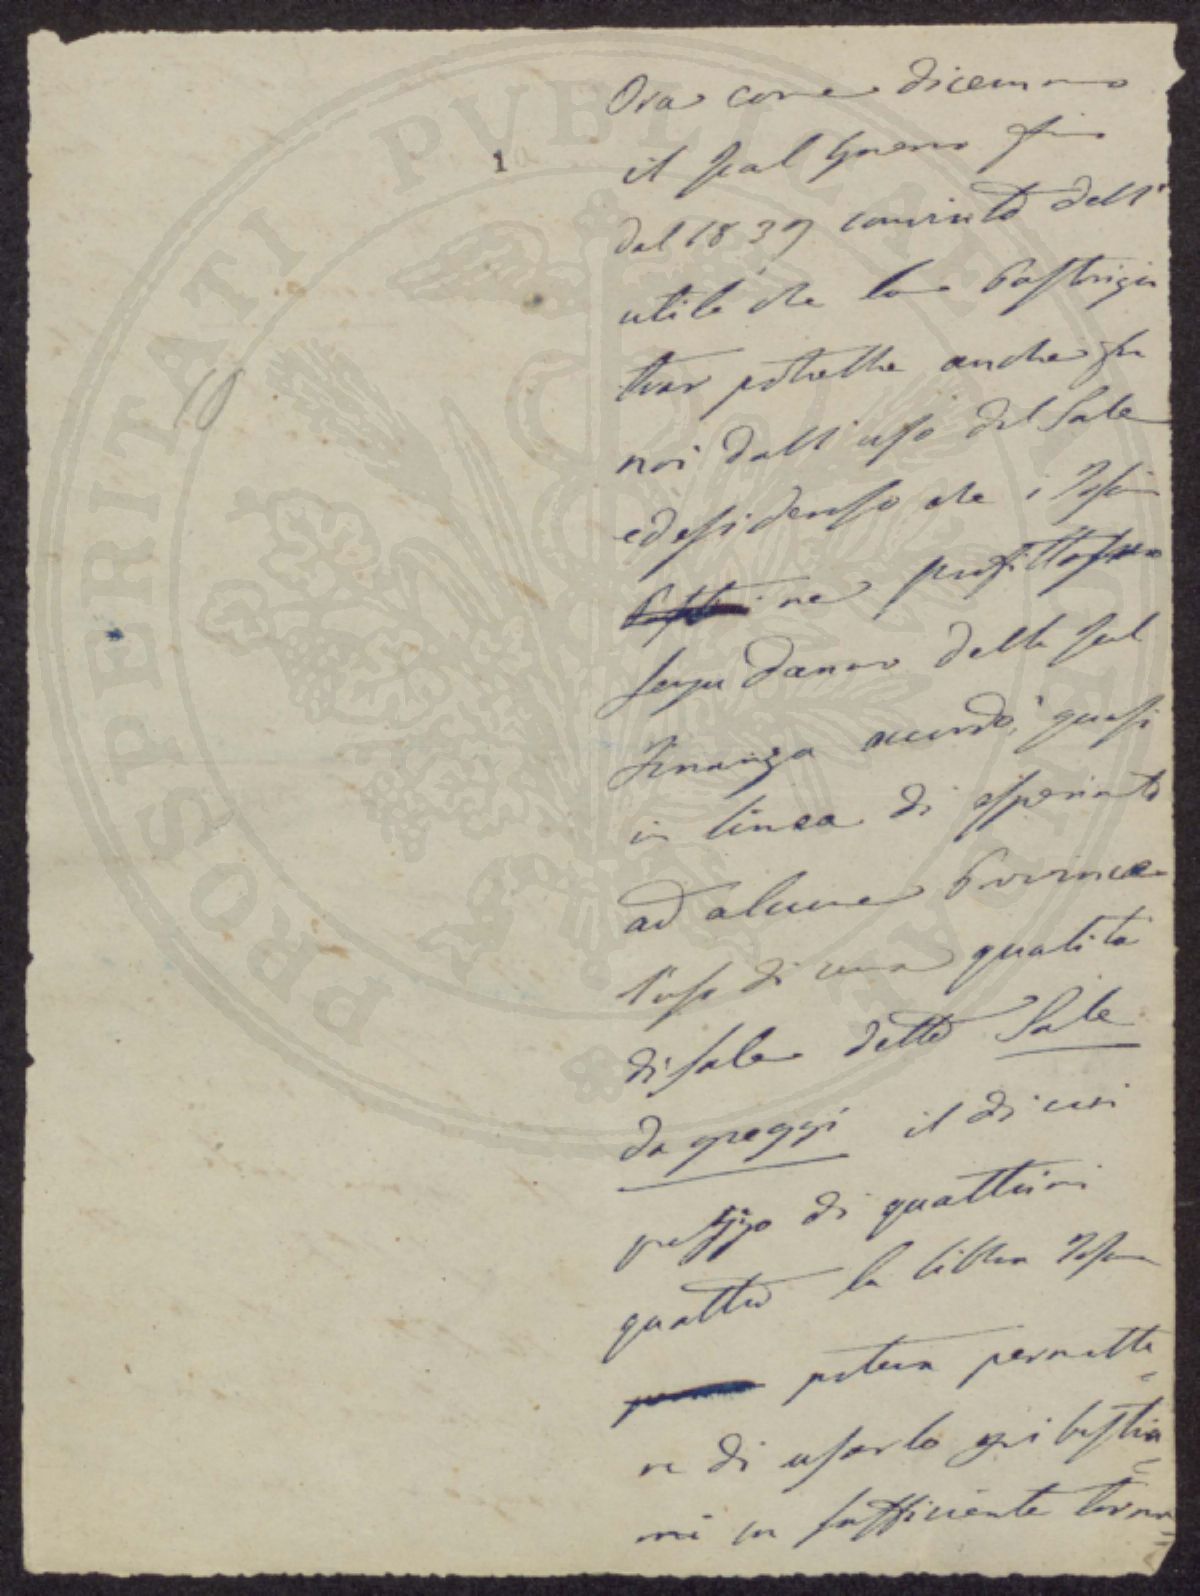 1
10
Ora come dicemmo
il Real Governo fin
dal 1839 convinto dell'
utile che la Pastorizia
trar potrebbe anche fra
noi dall'uso del Sale
e desideroso che i
ne profittassero
senza danno della Real
Finanza accordò, quasi
in linea di esperimento
ad alcune Provincie
l'uso di una qualità
di sale detto Sale
da greggi il di cui
prezzo di quattrini
quattro la libbra
potea permette=
re di usarlo pei bestia=
mi in sufficiente
PROSPERITATI PVBLICAE